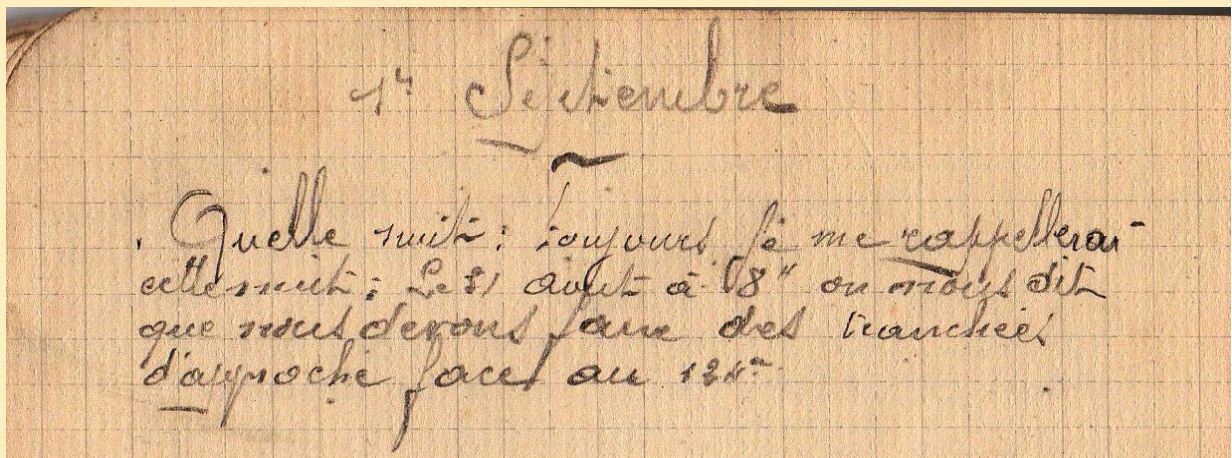 1er Septembre
Quelle nuit : Toujours je me rappellerai
cette nuit : Le 31 août à 18h on nous dit
que nous devons faire des tranchées
d'approche face au